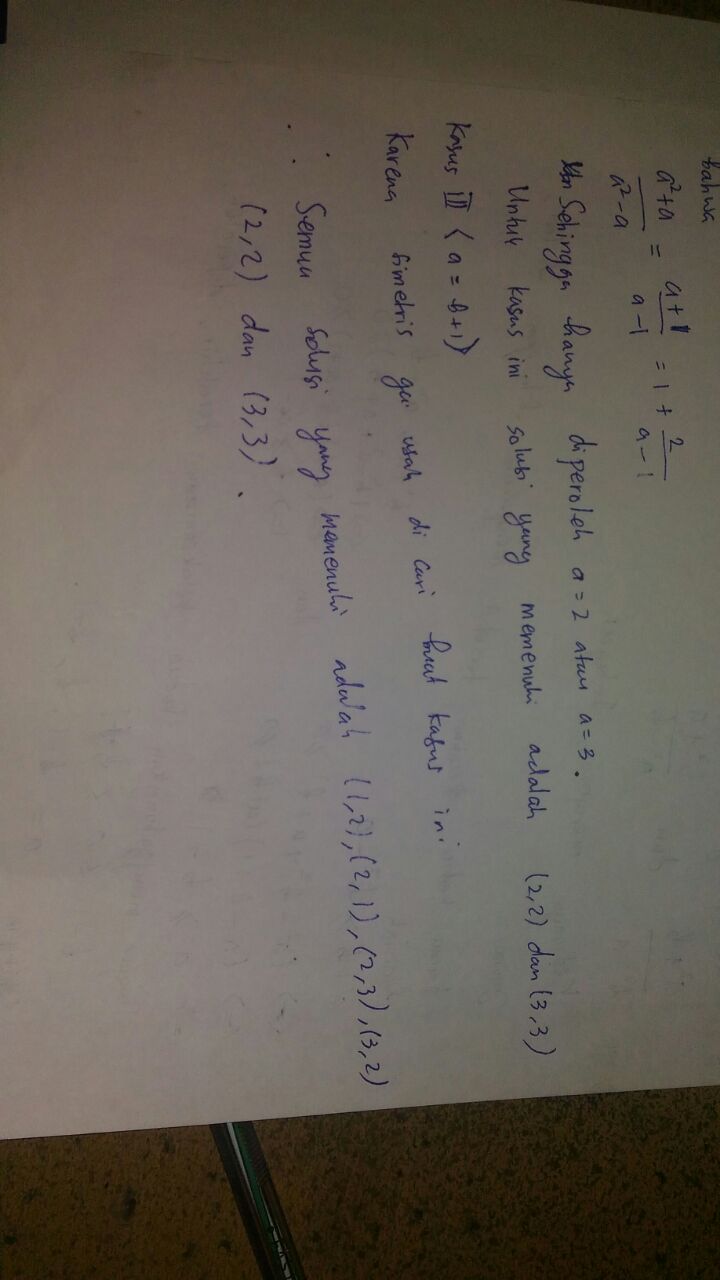 bahwa
a²+a / a²-a = a+1 / a-1 = 1 + 2 / a-1
Sehingga hanya diperoleh a = 2 atau a = 3.
Untuk kasus ini solusi yang memenuhi adalah (2,2) dan (3,3)
Kasus III < a = b+1 >
Karena simetris ga usah di cari buat kasus ini
∴ Semua solusi yang memenuhi adalah (1,2), (2,1), (2,3), (3,2)
(2,2) dan (3,3).